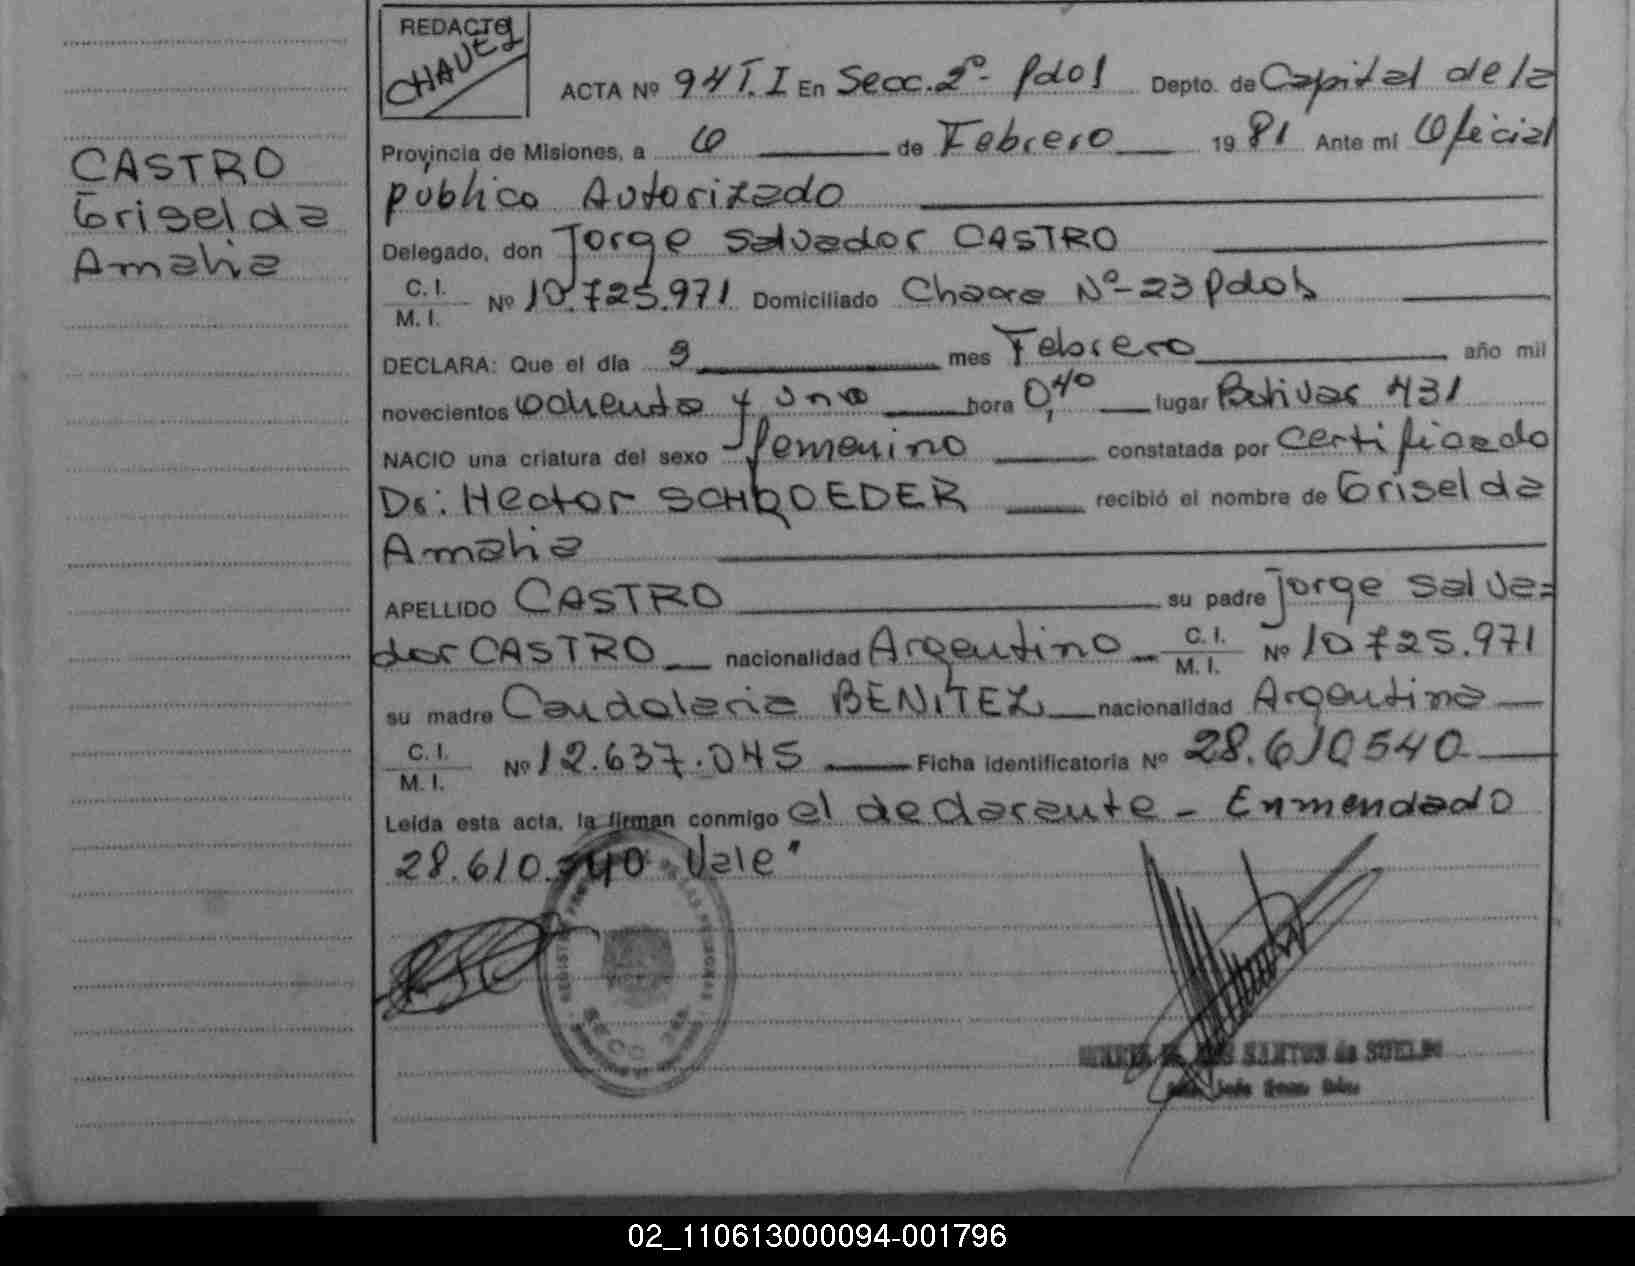 REDACTO
CHAVEZ
ACTA Nº 94 T. I En Secc. 2º- Pdos Depto. de Capital de la
Provincia de Misiones, a 6 de Febrero 19 81 Ante mi Oficial
publico Autorizado
Delegado, don Jorge Salvador CASTRO
C. I.
M. I. Nº 10.725.971 Domiciliado Chacra Nº-23 Pdos
DECLARA: Que el día 3 mes Febrero año mil
novecientos ochenta y uno hora 0,40 lugar Bolivar 431
NACIO una criatura del sexo femenino constatada por Certificado
Dr: Hector SCHROEDER recibió el nombre de Griselda
Amalia
APELLIDO CASTRO su padre Jorge Salva=
dor CASTRO nacionalidad Argentino C. I.
M. I. Nº 10725.971
su madre Candelaria BENITEZ nacionalidad Argentina
C. I.
M. I. Nº 12.637.045 Ficha Identificatoria Nº 28.610540
Leída esta acta, la firman conmigo el declarante - Enmendado
28.610.540 Vale"
CASTRO
Griselda
Amalia
SANTOS de
02_110613000094-001796